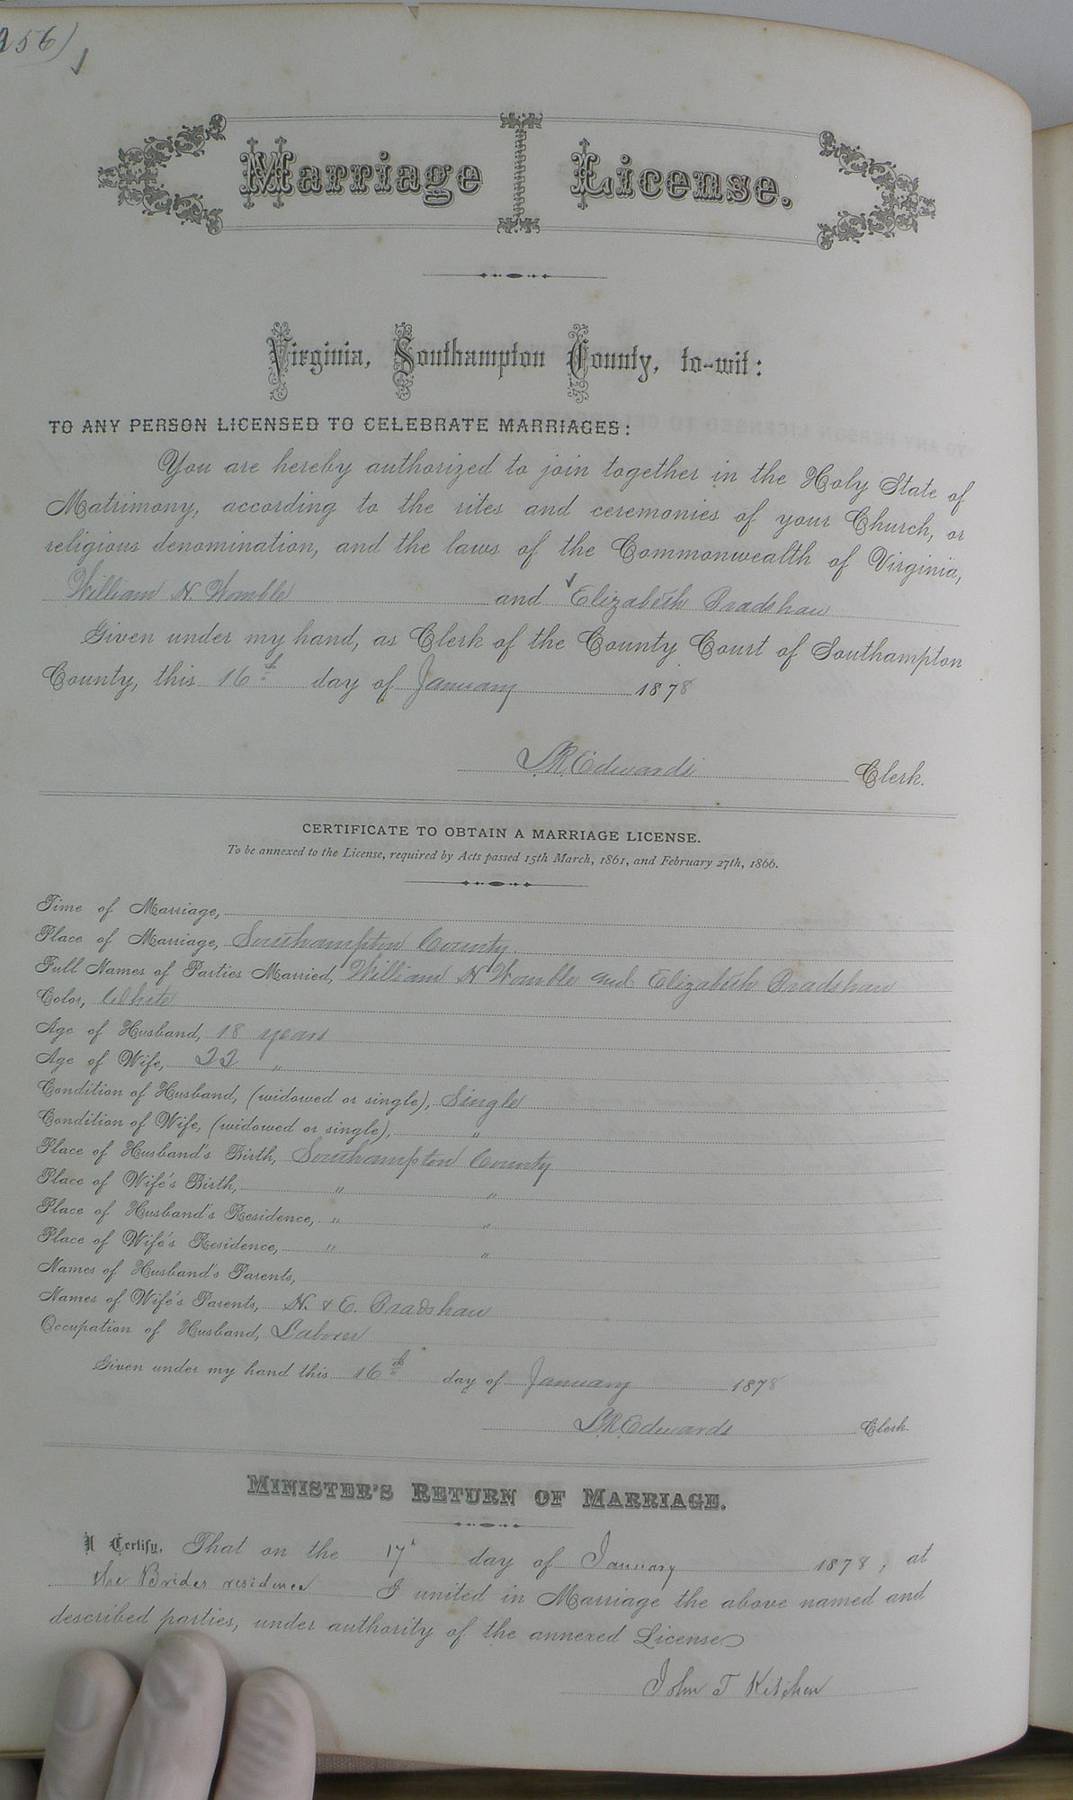 256)
Marriage License.
Virginia, Southampton County, to-wit:
TO ANY PERSON LICENSED TO CELEBRATE MARRIAGES:
You are hereby authorized to join together in the Holy State of
Matrimony, according to the rites and ceremonies of your Church, or
religious denomination, and the laws of the Commonwealth of Virginia,
William N. Womble and Elizabeth Bradshaw
Given under my hand, as Clerk of the County Court of Southampton
County, this 16th day of January 1878
L.R. Edwards Clerk.
CERTIFICATE TO OBTAIN A MARRIAGE LICENSE.
To be annexed to the License, required by Acts passed 15th March, 1861, and February 27th, 1866.
Time of Marriage,
Place of Marriage, Southampton County.
Full Names of Parties Married, William N Womble and Elizabeth Bradshaw
Color, White
Age of Husband, 18 years
Age of Wife, 22 "
Condition of Husband, (widowed or single), Single
Condition of Wife, (widowed or single), "
Place of Husband's Birth, Southampton County
Place of Wife's Birth, " "
Place of Husband's Residence, " "
Place of Wife's Residence, " "
Names of Husband's Parents,
Names of Wife's Parents, N. & E. Bradshaw
Occupation of Husband, Laborer
Given under my hand this 16th day of January 1878
L.R. Edwards Clerk
MINISTER'S RETURN OF MARRIAGE.
I Certify, That on the 17 day of January 1878, at
the Brides residence I united in Marriage the above named and
described parties, under authority of the annexed License
John T Kitchen